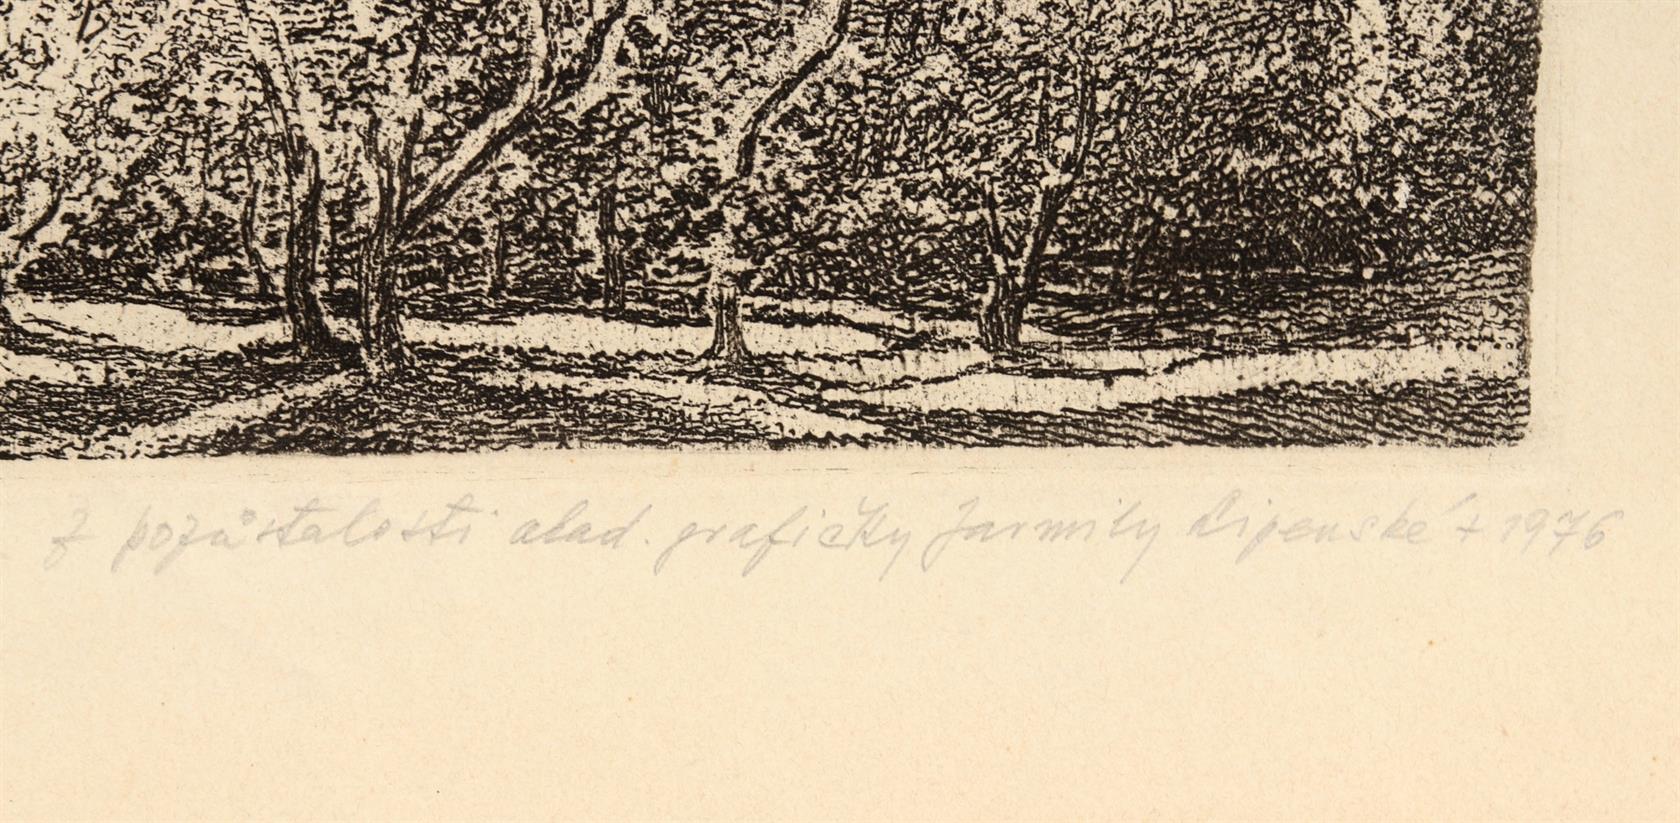 Z pozůstalosti akad. grafičky Jarmily Lipenské + 1976